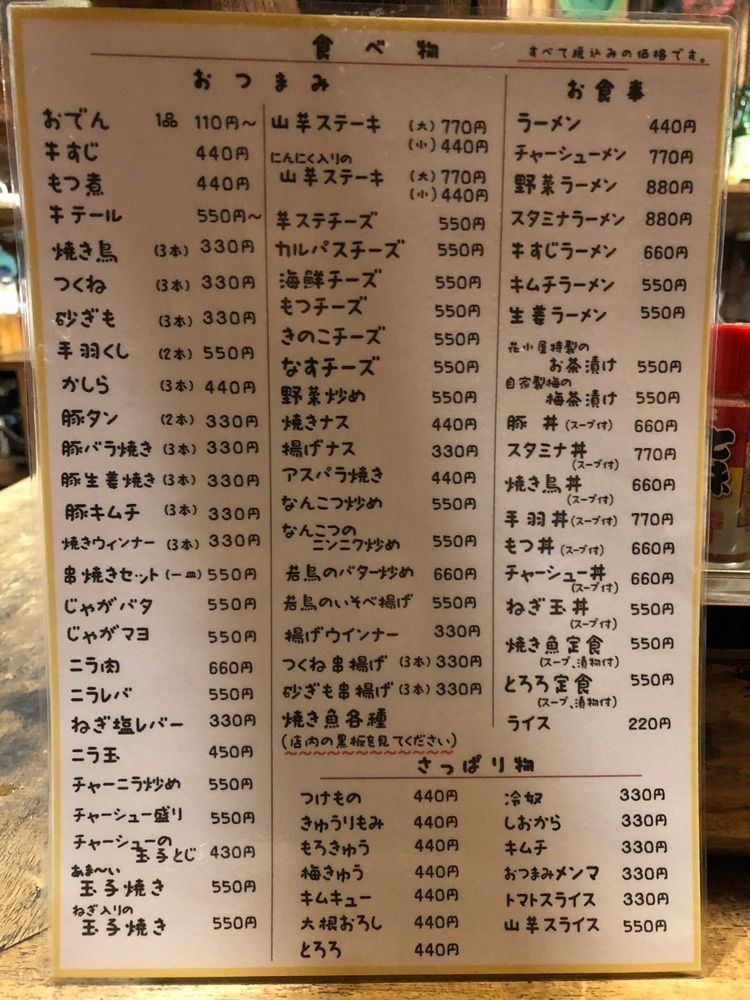 食べ物
すべて税込みの価格です。
おつまみ
おでん 1品 110円～
牛すじ 440円
もつ煮 440円
牛テール 550円～
焼き鳥 (3本) 330円
つくね (3本) 330円
砂ぎも (3本) 330円
手羽くし (2本) 550円
かしら (3本) 440円
豚タン (2本) 330円
豚バラ焼き (3本) 330円
豚生姜焼き (3本) 330円
豚キムチ (3本) 330円
焼きウィンナー (3本) 330円
串焼きセット (一皿) 550円
じゃがバタ 550円
じゃがマヨ 550円
ニラ肉 660円
ニラレバ 550円
ねぎ塩レバー 330円
ニラ玉 450円
チャーニラ炒め 550円
チャーシュー盛り 550円
チャーシューの
玉子とじ 430円
あま〜い
玉子焼き 550円
ねぎ入りの
玉子焼き 550円
山芋ステーキ (大) 770円
(小) 440円
にんにく入りの
山芋ステーキ (大) 770円
(小) 440円
芋ステチーズ 550円
カルパスチーズ 550円
海鮮チーズ 550円
もつチーズ 550円
きのこチーズ 550円
なすチーズ 550円
野菜炒め 550円
焼きナス 440円
揚げナス 330円
アスパラ焼き 440円
なんこつ炒め 550円
なんこつの
ニンニク炒め 550円
若鳥のバター炒め 660円
若鳥のいそべ揚げ 550円
揚げウインナー 330円
つくね串揚げ (3本) 330円
砂ぎも串揚げ (3本) 330円
焼き魚各種
(店内の黒板を見てください)
お食事
ラーメン 440円
チャーシューメン 770円
野菜ラーメン 880円
スタミナラーメン 880円
牛すじラーメン 660円
キムチラーメン 550円
生姜ラーメン 550円
花小屋特製の
お茶漬け 550円
自家製梅の
梅茶漬け 550円
豚丼 (スープ付) 660円
スタミナ丼 770円
(スープ付)
焼き鳥丼 660円
(スープ付)
手羽丼 (スープ付) 770円
もつ丼 (スープ付) 660円
チャーシュー丼 660円
(スープ付)
ねぎ玉丼 550円
(スープ付)
焼き魚定食 550円
(スープ、漬物付)
とろろ定食 550円
(スープ、漬物付)
ライス 220円
さっぱり物
つけもの 440円
きゅうりもみ 440円
もろきゅう 440円
梅きゅう 440円
キムキュー 440円
大根おろし 440円
とろろ 440円
冷奴 330円
しおから 330円
キムチ 330円
おつまみメンマ 330円
トマトスライス 330円
山芋スライス 550円